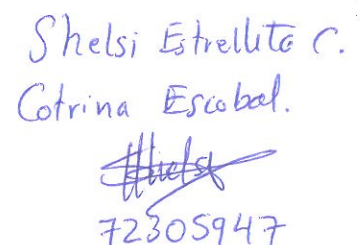 Shelsi Estrellita C.
Cotrina Escobal.
Shelsi
72305947